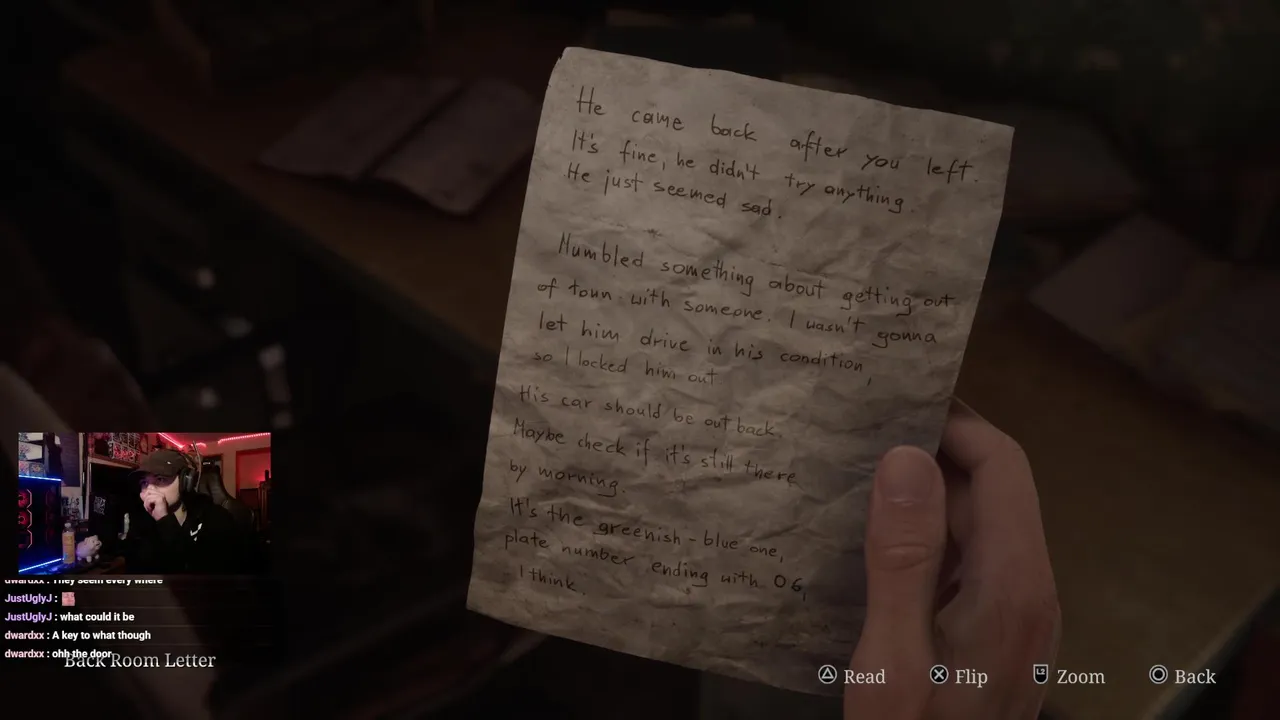 He came back after you left.
It's fine, he didn't try anything.
He just seemed sad.
Mumbled something about getting out
of town with someone. I wasn't gonna
let him drive in his condition,
so I locked him out
His car should be out back.
Maybe check if it's still there
by morning.
It's the greenish-blue one,
plate number ending with 06,
I think.
dwardxx : They seem every where
JustUglyJ :
JustUglyJ : what could it be
dwardxx : A key to what though
dwardxx : ohh the door
Back Room Letter
Read
Flip
L2 Zoom
Back